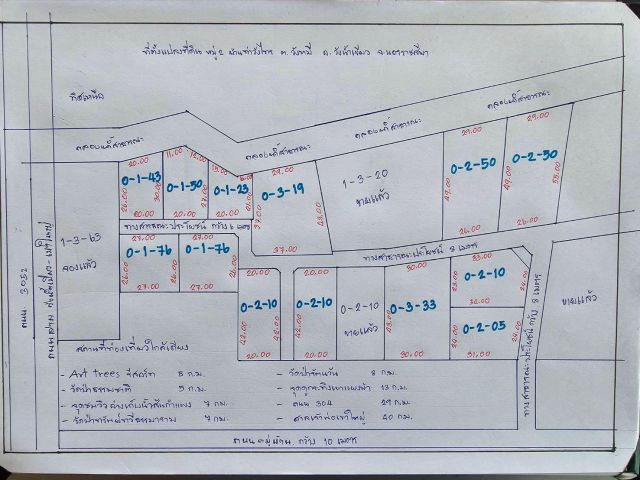 ที่ตั้งแปลงที่ดิน หมู่ 2 บ้านท่าวังไทร ต.วังหมี อ.วังน้ำเขียว จ.นครราชสีมา
ทิศเหนือ
คลองน้ำสาธารณะ
คลองน้ำสาธารณะ
คลองน้ำสาธารณะ
คลองน้ำสาธารณะ
20.00 11.00 12.00 15.00 29.00 29.00 29.00
0-1-43 0-1-50 0-1-23 0-3-19 1-3-20 0-2-50 0-2-50
ขายแล้ว
26.00 30.00 27.00 37.00 49.00 49.00 53.00
20.00 20.00 20.00 37.00 26.00 26.00
ทางสาธารณะประโยชน์ กว้าง 6 เมตร
ทางสาธารณะประโยชน์ 8 เมตร
1-3-63
จองแล้ว
27.00 27.00
0-1-76 0-1-76
26.00 26.00 26.00
27.00 27.00
20.00 20.00 30.00 33.00
0-2-10 0-2-10 0-2-10 0-3-33 0-2-10
ขายแล้ว
0-2-05
42.00 42.00 44.00
20.00 20.00 30.00 31.00
ทางสาธารณะประโยชน์ กว้าง 8 เมตร
ขายแล้ว
ถนน 3052
สถานที่ท่องเที่ยวใกล้เคียง
- Art trees รีสอร์ท 5 ก.ม.
- วัดป่าธรรมชาติ 5 ก.ม.
- จุดชมวิวอ่างเก็บน้ำลำกำแพง 7 ก.ม.
7 ก.ม.
8 ก.ม.
- จุดดูกระทิงเขาแผงม้า 13 ก.ม.
- ถนน 304 29 ก.ม.
- ศาลเจ้าพ่อเขาใหญ่ 40 ก.ม.
ถนนหมู่บ้าน กว้าง 10 เมตร